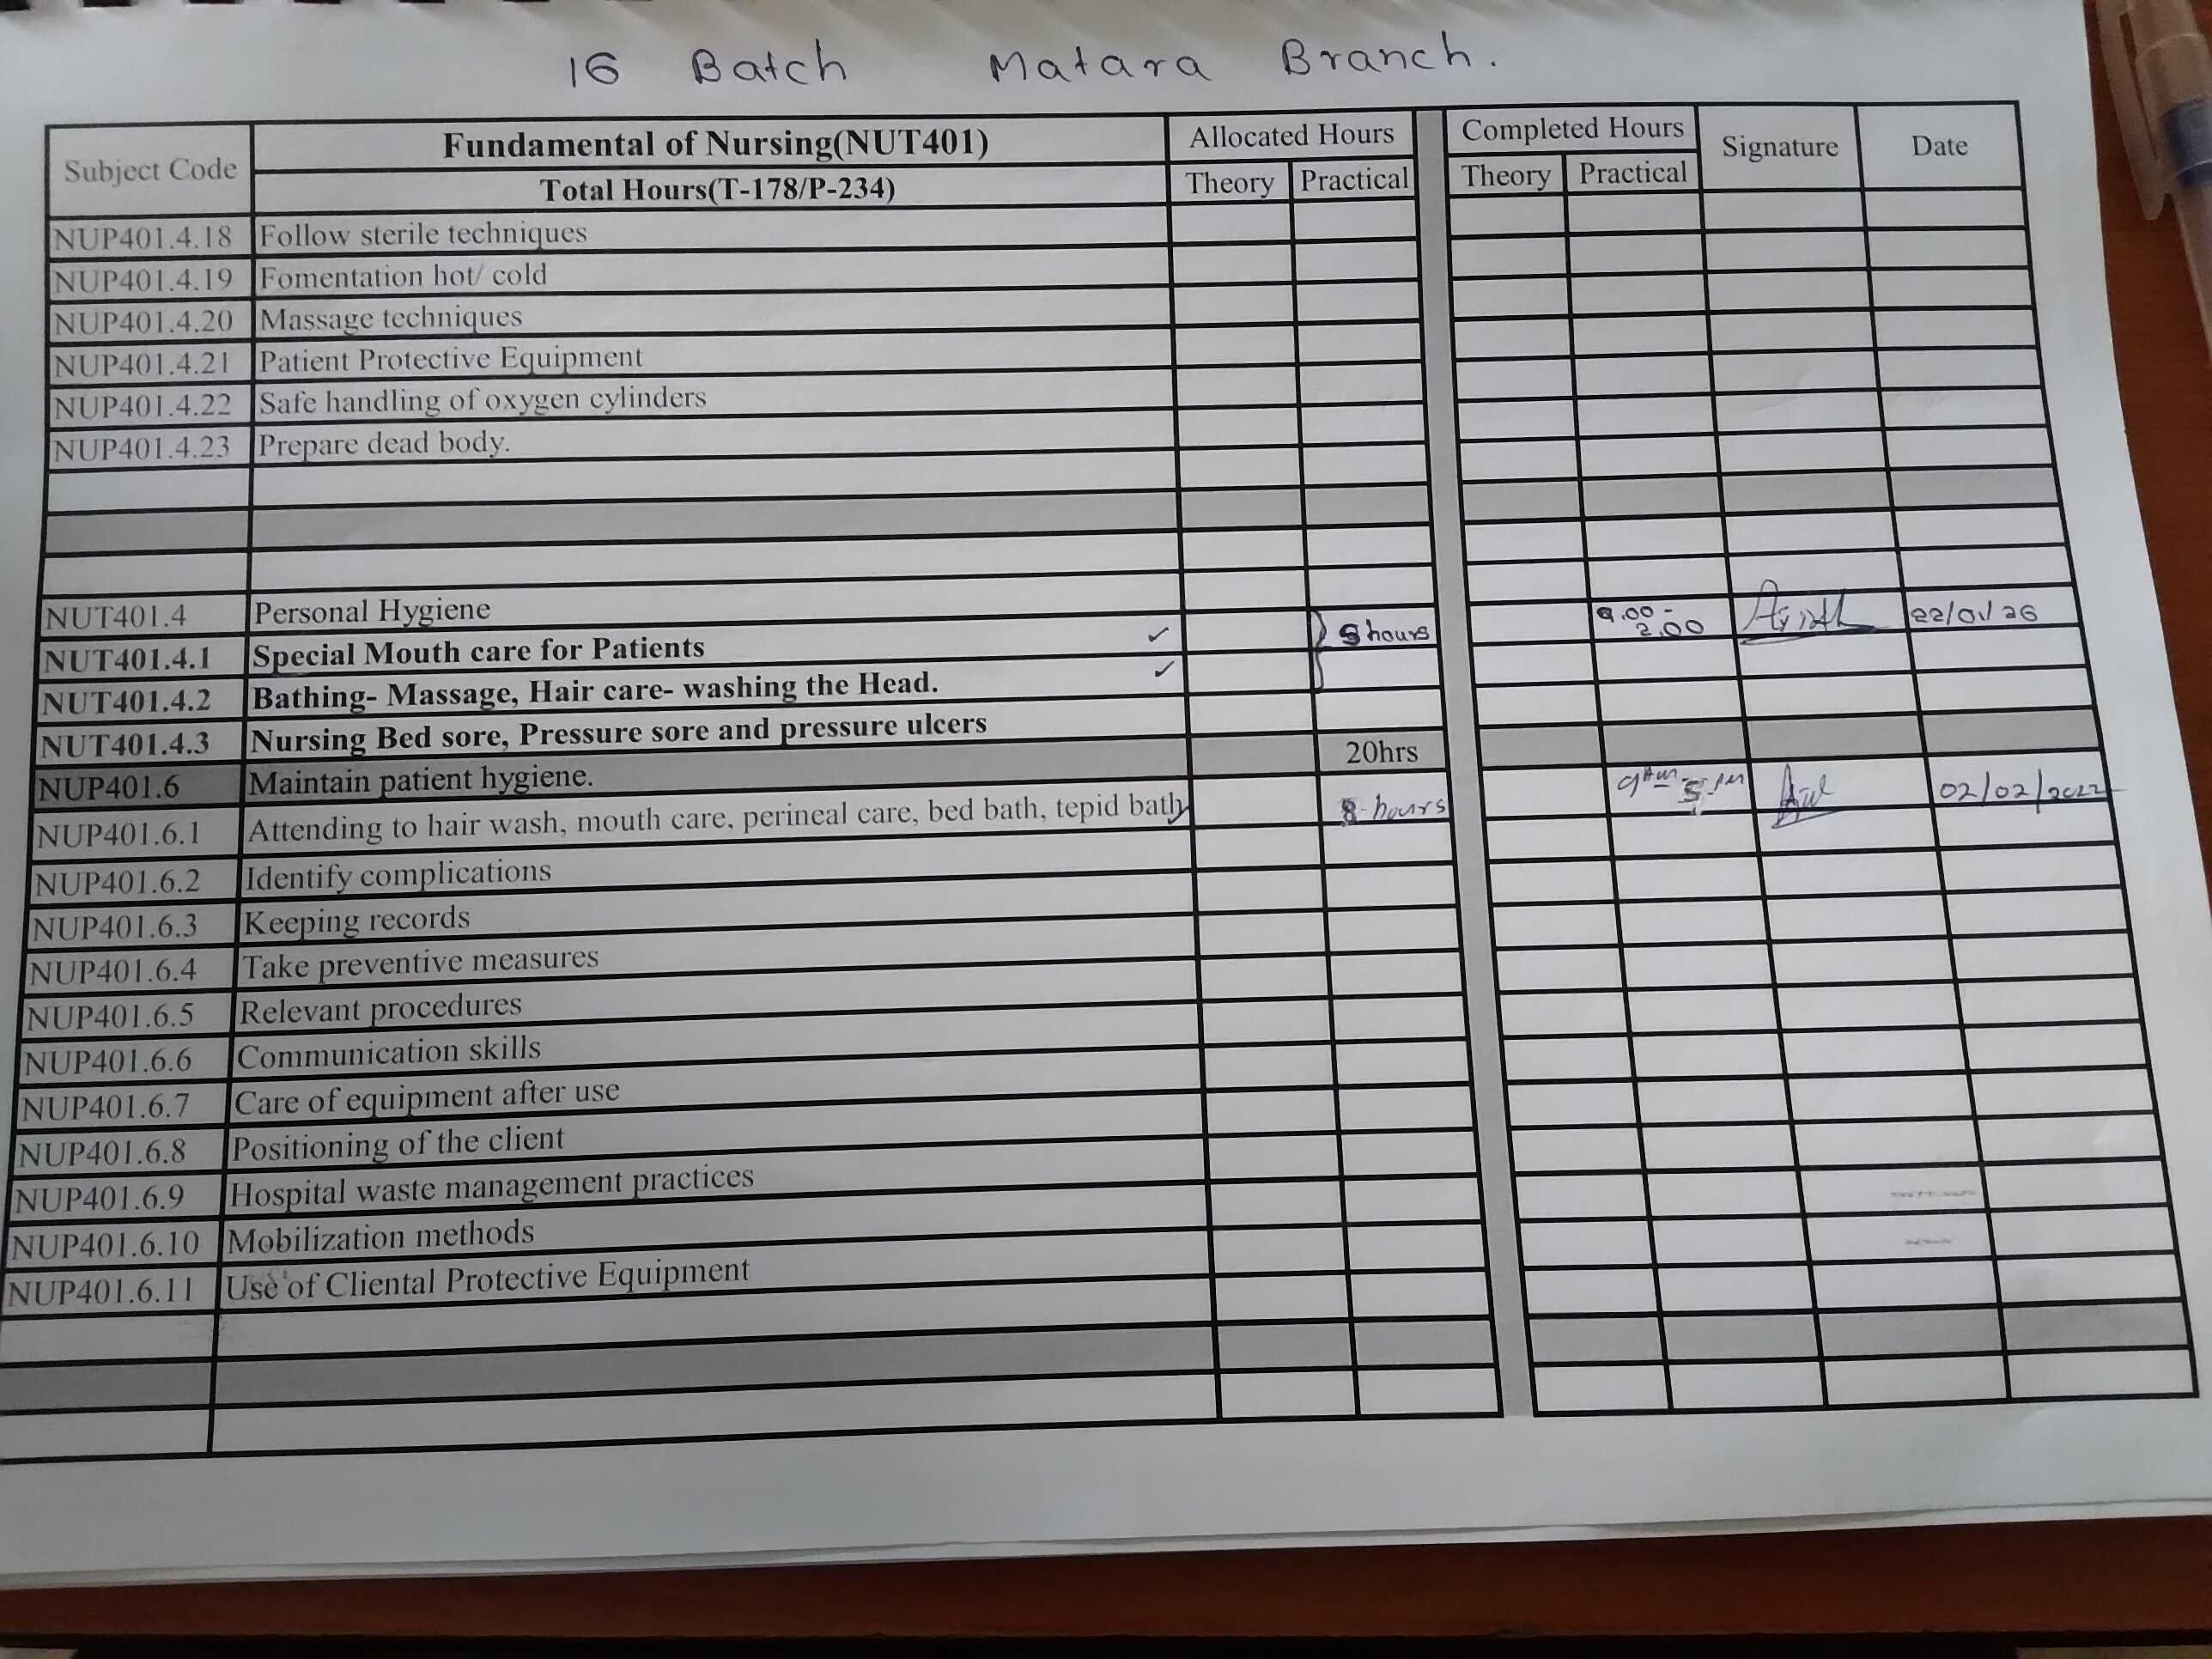 16 Batch Matara Branch.
Subject Code Fundamental of Nursing(NUT401) Allocated Hours Completed Hours Signature Date
Total Hours(T-178/P-234) Theory Practical Theory Practical
NUP401.4.18 Follow sterile techniques
NUP401.4.19 Fomentation hot/ cold
NUP401.4.20 Massage techniques
NUP401.4.21 Patient Protective Equipment
NUP401.4.22 Safe handling of oxygen cylinders
NUP401.4.23 Prepare dead body.
NUT401.4 Personal Hygiene
NUT401.4.1 Special Mouth care for Patients ✓ hours 9.00 - 2.00 22/01/26
NUT401.4.2 Bathing- Massage, Hair care- washing the Head. ✓
NUT401.4.3 Nursing Bed sore, Pressure sore and pressure ulcers
NUP401.6 Maintain patient hygiene. 20hrs
NUP401.6.1 Attending to hair wash, mouth care, perineal care, bed bath, tepid bath 8 hours 02/02/2022
NUP401.6.2 Identify complications
NUP401.6.3 Keeping records
NUP401.6.4 Take preventive measures
NUP401.6.5 Relevant procedures
NUP401.6.6 Communication skills
NUP401.6.7 Care of equipment after use
NUP401.6.8 Positioning of the client
NUP401.6.9 Hospital waste management practices
NUP401.6.10 Mobilization methods
NUP401.6.11 Use of Cliental Protective Equipment